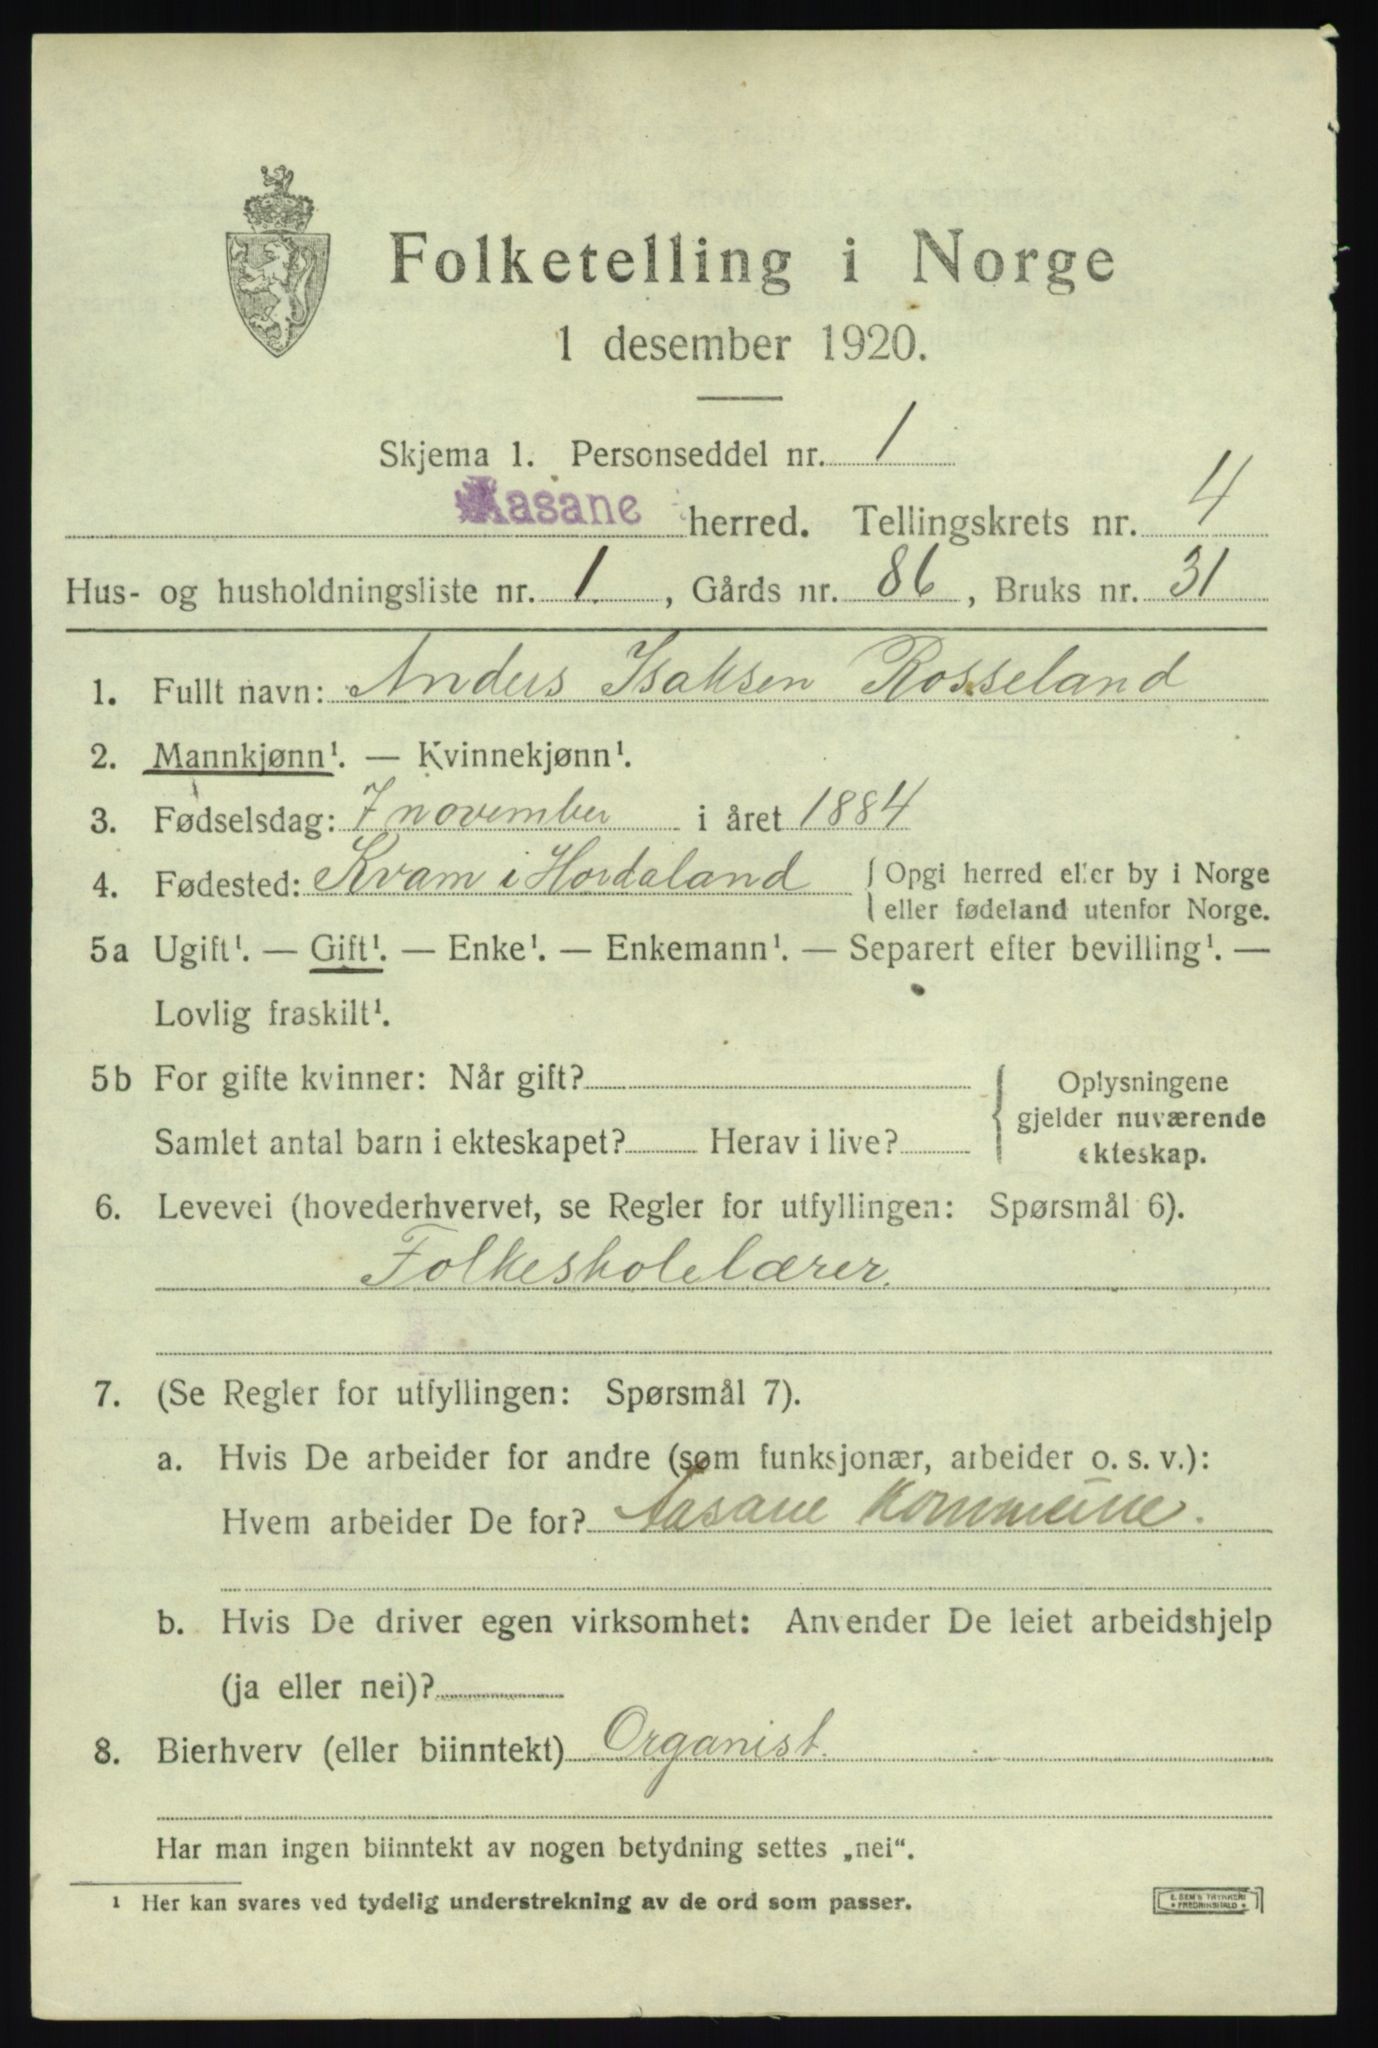 Folketelling i Norge
1 desember 1920.
Skjema 1. Personseddel nr. 1
Aasane herred. Tellingskrets nr. 4
Hus- og husholdningsliste nr. 1. , Gårds nr. 86 , Bruks nr. 31
1. Fullt navn: Anders Isaksen Rosseland
2. Mannkjønn¹. — Kvinnekjønn¹.
3. Fødselsdag: 7 november i året 1884
4. Fødested: Kvam i Hordaland { Opgi herred eller by i Norge
eller fødeland utenfor Norge.
5a Ugift¹. — Gift¹. — Enke¹. — Enkemann¹. — Separert efter bevilling¹. —
Lovlig fraskilt¹.
5b For gifte kvinner: Når gift?
Samlet antal barn i ekteskapet? Herav i live?
{ Oplysningene
gjelder nuværende
ekteskap.
6. Levevei (hovederhvervet, se Regler for utfyllingen: Spørsmål 6).
Folkeskolelærer.
7. (Se Regler for utfyllingen: Spørsmål 7).
a. Hvis De arbeider for andre (som funksjonær, arbeider o. s. v.):
Hvem arbeider De for? Aasane Kommune.
b. Hvis De driver egen virksomhet: Anvender De leiet arbeidshjelp
(ja eller nei)?
8. Bierhverv (eller biinntekt) Organist.
Har man ingen biinntekt av nogen betydning settes „nei“.
¹ Her kan svares ved tydelig understrekning av de ord som passer.
E. SEM'S TRYKKERI
• FREDRIKSHALD •